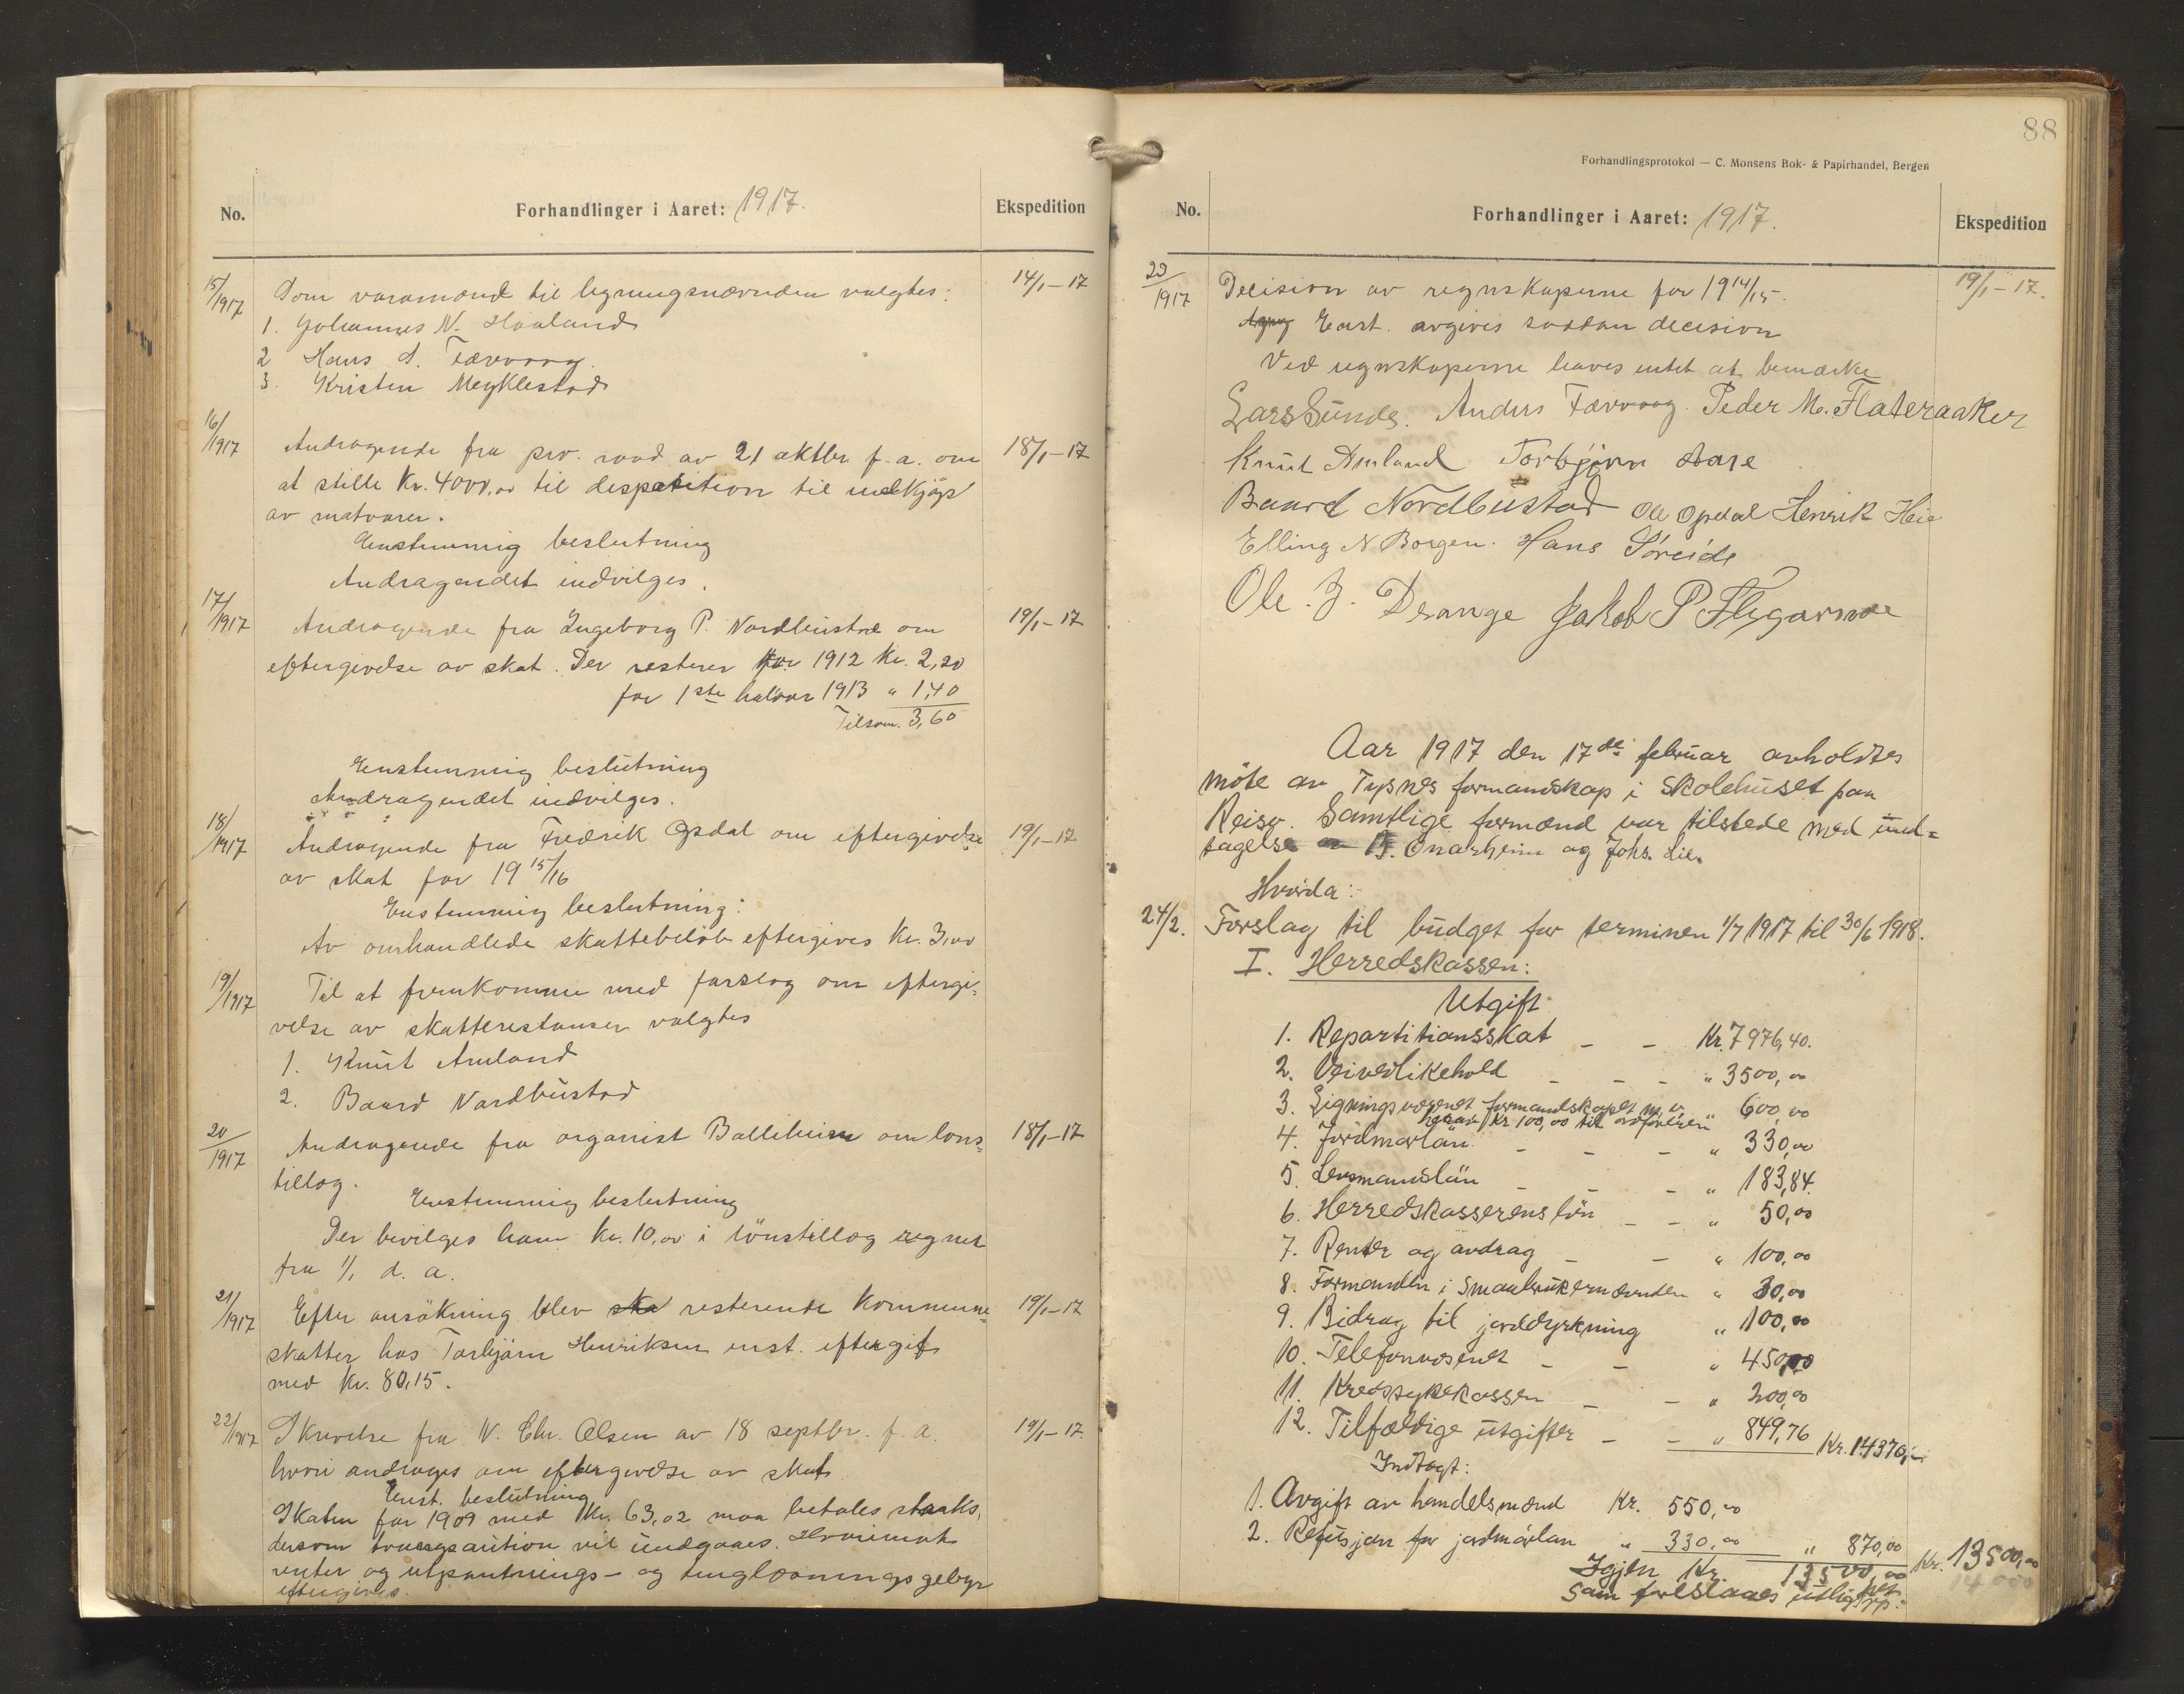 No.
Forhandlinger i Aaret: 1917.
Ekspedition
15/1917
Som varamænd til ligningsnævnden valgtes:
14/1-17
1. Johannes N. Haaland
2 Hans A. Færvaag.
3. Kristen Meyklestad
16/1917
Andragende fra prov. raad av 21 oktbr. f. a. om
18/1-17
at stille Kr. 4000,00 til disposition til indkjøp
av matvarer.
Enstemmig beslutning
Andragendet indvilges.
17/1917
Andragende fra Ingeborg P. Nordbustad om
19/1-17
eftergivelse av skat. Der resterer for 1912 Kr. 2,20
for 1ste halvaar 1913 " 1,40
Tilsam. 3,60
Enstemmig beslutning
Andragendet indvilges.
18/1917
Andragende fra Fredrik Opdal om eftergivelse
19/1-17
av skat for 1915/16
Enstemmig beslutning:
Av omhandlede skattebeløb eftergives Kr. 3,00
19/1917
Til at fremkomme med forslag om eftergi-
velse av skatterestanser valgtes
1. Knut Amland
2. Baard Nordbustad
20/1917
Andragende fra organist Balleheim om løns-
18/1-17
tillæg.
Enstemmig beslutning
Der bevilges ham Kr. 10,00 i lønstillæg regnet
fra 1/1 d. a.
21/1917
Efter ansökning blev ska resterende Kommune-
19/1-17
skatter hos Torbjörn Henriksen enst. eftergit
med Kr. 80,15.
22/1917
Skrivelse fra N. Chr. Olsen av 18 septbr. f. a.
19/1-17.
hvori andrages om eftergivelse av skat.
Enst. beslutning
Skaten for 1909 med Kr. 63,02 maa betales straks,
dersom tvangsauktion vil undgaaes. Hvorimot
renter og utpantnings- og tinglæsningsgebyr
eftergives.
88
Forhandlingsprotokol — C. Monsens Bok- & Papirhandel, Bergen
No.
Forhandlinger i Aaret: 1917.
Ekspedition
23/1917
Decision av regnskaperne for 1914/15.
19/1-17.
Enst. avgives saadan decision
Ved regnskaperne haves intet at bemærke
Lars Sunde. Anders Færvaag. Peder M. Flateraaker
Knut Amland Torbjørn Aase
Baard Nordbustad Ole Opdal Henrik Heie
Elling N Borgen. Hans Søreide
Ole. J. Drange Jakob P Flygansvær
Aar 1917 den 17de februar avholdtes
möte av Tysnes formandskap i Skolehuset paa
Reisø. Samtlige formænd var tilstede med und-
tagelse av N. Onarheim og Johs. Lie.
Hvorda:
24/2.
Forslag til budget for terminen 1/7 1917 til 30/6 1918.
I. Herredskassen:
Utgift
1. Repartitionsskat - - Kr. 7976,40.
2. Veivedlikehold - - - " 3500,00
3. Ligningsvæsenet formandskapet m. v. " 600,00
herav Kr 100,00 til ordføreren
4. Jordmorlön - - - " 330,00
5. Lensmandslön - - - " 183,84.
6. Herredskasserens lön - - " 50,00
7. Renter og avdrag - - " 100,00
8. Formanden i Smaabrukernævnden " 30,00
9. Bidrag til jorddyrkning " 100,00
10. Telefonvæsenet - - " 450,00
11. Kredssykekassen - - " 200,00
12. Tilfældige utgifter - - " 849,76 Kr. 14370,-
Indtægt:
1. Avgift av handelsmænd Kr. 550,00
2. Refusjon for jordmorløn " 330,00 " 870,00
Igjen Kr. 13500,00 Kr. 13500,00
14 000
som foreslaaes utlignet